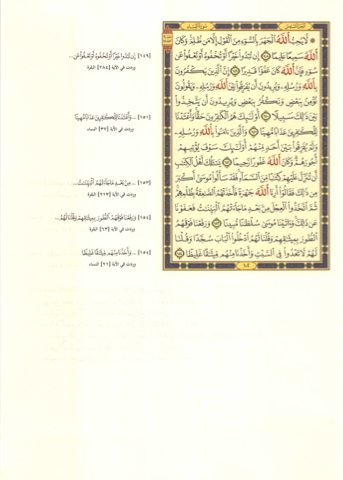 لَّا يُحِبُّ ٱللَّهُ ٱلْجَهْرَ بِٱلسُّوٓءِ مِنَ ٱلْقَوْلِ إِلَّا مَن ظُلِمَ وَكَانَ
ٱللَّهُ سَمِيعًا عَلِيمًا ١٤٨ إِن تُبْدُوا۟ خَيْرًا أَوْ تُخْفُوهُ أَوْ تَعْفُوا۟ عَن
سُوٓءٍ فَإِنَّ ٱللَّهَ كَانَ عَفُوًّا قَدِيرًا ١٤٩ إِنَّ ٱلَّذِينَ يَكْفُرُونَ
بِٱللَّهِ وَرُسُلِهِۦ وَيُرِيدُونَ أَن يُفَرِّقُوا۟ بَيْنَ ٱللَّهِ وَرُسُلِهِۦ وَيَقُولُونَ
نُؤْمِنُ بِبَعْضٍ وَنَكْفُرُ بِبَعْضٍ وَيُرِيدُونَ أَن يَتَّخِذُوا۟
بَيْنَ ذَٰلِكَ سَبِيلًا ١٥٠ أُو۟لَـٰٓئِكَ هُمُ ٱلْكَـٰفِرُونَ حَقًّا وَأَعْتَدْنَا
لِلْكَـٰفِرِينَ عَذَابًا مُّهِينًا ١٥١ وَٱلَّذِينَ ءَامَنُوا۟ بِٱللَّهِ وَرُسُلِهِۦ
وَلَمْ يُفَرِّقُوا۟ بَيْنَ أَحَدٍ مِّنْهُمْ أُو۟لَـٰٓئِكَ سَوْفَ يُؤْتِيهِمْ
أُجُورَهُمْ وَكَانَ ٱللَّهُ غَفُورًا رَّحِيمًا ١٥٢ يَسْـَٔلُكَ أَهْلُ ٱلْكِتَـٰبِ
أَن تُنَزِّلَ عَلَيْهِمْ كِتَـٰبًا مِّنَ ٱلسَّمَآءِ فَقَدْ سَأَلُوا۟ مُوسَىٰٓ أَكْبَرَ
مِن ذَٰلِكَ فَقَالُوٓا۟ أَرِنَا ٱللَّهَ جَهْرَةً فَأَخَذَتْهُمُ ٱلصَّـٰعِقَةُ بِظُلْمِهِمْ
ثُمَّ ٱتَّخَذُوا۟ ٱلْعِجْلَ مِنۢ بَعْدِ مَا جَآءَتْهُمُ ٱلْبَيِّنَـٰتُ فَعَفَوْنَا
عَن ذَٰلِكَ وَءَاتَيْنَا مُوسَىٰ سُلْطَـٰنًا مُّبِينًا ١٥٣ وَرَفَعْنَا فَوْقَهُمُ
ٱلطُّورَ بِمِيثَـٰقِهِمْ وَقُلْنَا لَهُمُ ٱدْخُلُوا۟ ٱلْبَابَ سُجَّدًا وَقُلْنَا
لَهُمْ لَا تَعْدُوا۟ فِى ٱلسَّبْتِ وَأَخَذْنَا مِنْهُم مِّيثَـٰقًا غَلِيظًا ١٥٤
[١٤٩] إِن تُبْدُوا۟ خَيْرًا أَوْ تُخْفُوهُ أَوْ تَعْفُوا۟ عَن...
[١٥١] ...وَأَعْتَدْنَا لِلْكَـٰفِرِينَ عَذَابًا مُّهِينًا
وردت في الآية [٣٧] النساء
[١٥٣] ...مِنۢ بَعْدِ مَا جَآءَتْهُمُ ٱلْبَيِّنَـٰتُ...
وردت في الآية [٢١٣] البقرة
[١٥٤] وَرَفَعْنَا فَوْقَهُمُ ٱلطُّورَ بِمِيثَـٰقِهِمْ وَقُلْنَا لَهُمُ...
وردت في الآية [٦٣] البقرة
[١٥٤] ...وَأَخَذْنَا مِنْهُم مِّيثَـٰقًا غَلِيظًا
وردت في الآية [٢١] النساء